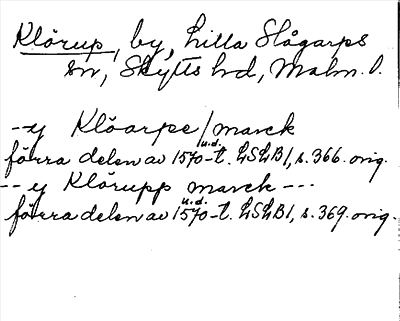 Klörup, by, Lilla Slågarps
sn, Skytts hd, Malm. l.
--y Klöarpe/marck
förra delen av 1570-t. u.d. LSLB1, s. 366. orig.
-- y Klörupp marck ---
förra delen av 1570-t. u.d. LSLB1, s. 369. orig.